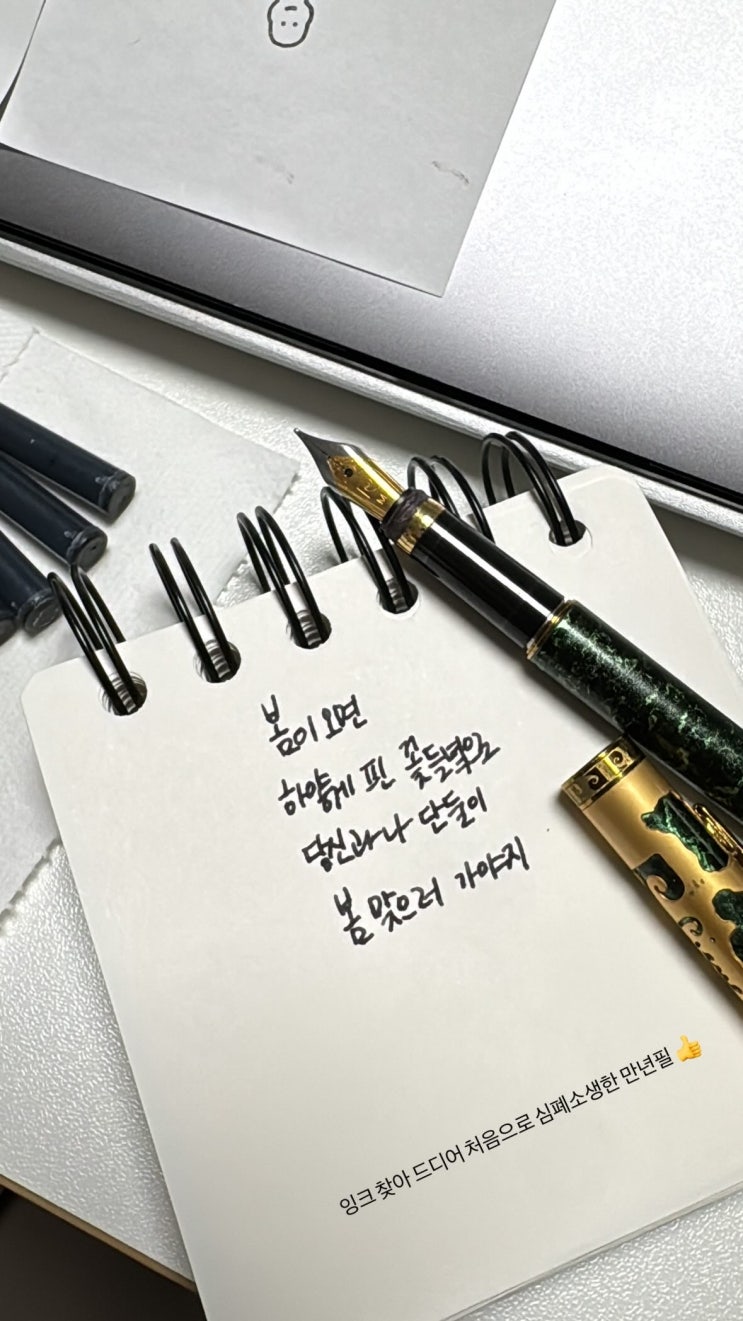 봄이 오면
하얗게 핀 꽃들녘으로
당신과 나 단둘이
봄 맞으러 가야지
잉크 찾아 드디어 처음으로 심폐소생한 만년필 👍